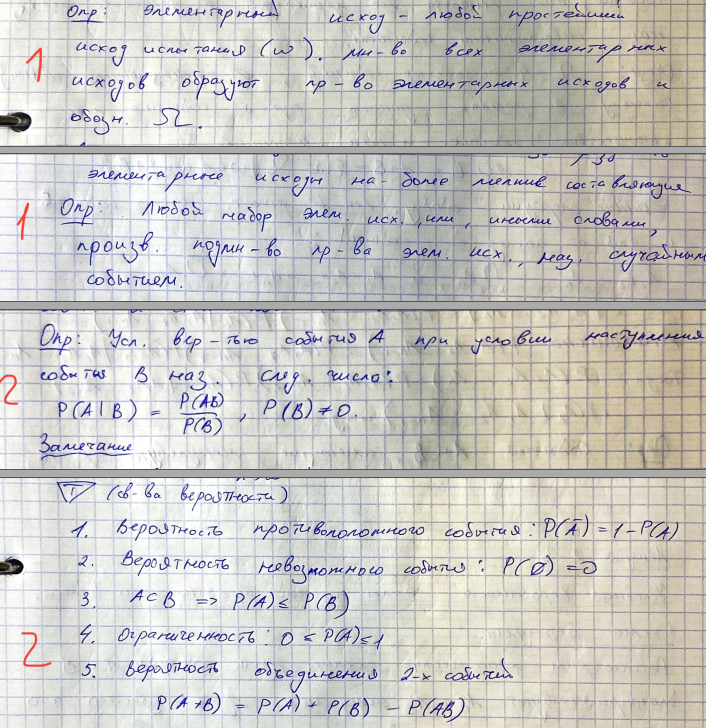 Опр: Элементарный исход - любой простейший
1 исход испытания (ω). мн-во всех элементарных
исходов образуют пр-во элементарных исходов и
обозн. Ω.
элементарные исходы на-более мелкие составляющие
1 Опр: Любой набор элем. исх., или, иными словами,
произв. подмн-во пр-ва элем. исх., наз. случайным
событием.
Опр: Усл. вер-тью события A при условии наступления
2 события B наз. след. число:
P(A|B) = P(AB)/P(B), P(B) ≠ 0.
Замечание
T (св-ва вероятности)
1. Вероятность противоположного события: P(Ā) = 1 - P(A)
2. Вероятность невозможного события: P(∅) = 0
3. A⊂B => P(A) ≤ P(B)
2 4. Ограниченность: 0 ≤ P(A) ≤ 1
5. Вероятность объединения 2-х событий
P(A+B) = P(A) + P(B) - P(AB)